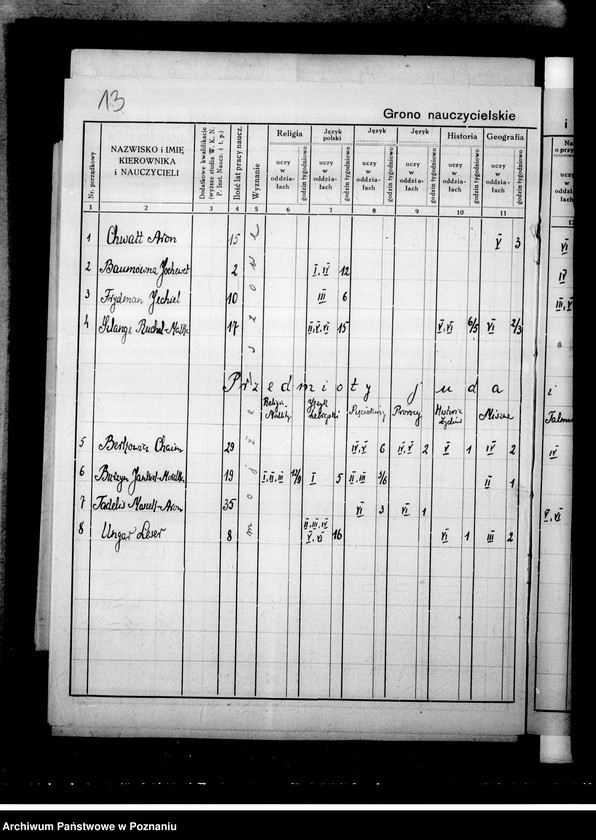 13
Grono nauczycielskie i
Nr. porządkowy
NAZWISKO i IMIĘ KIEROWNIKA i NAUCZYCIELI
Dodatkowe kwalifikacje (wyższe studia W. K. N. P. Inst. Naucz. i t. p.)
Ilość lat pracy naucz.
Wyznanie
Religia
Język polski
Język
Język
Historia
Geografia
uczy w oddzia-łach
godzin tygodniowo
uczy w oddzia-łach
godzin tygodniowo
uczy w oddzia-łach
godzin tygodniowo
uczy w oddzia-łach
godzin tygodniowo
uczy w oddzia-łach
godzin tygodniowo
uczy w oddzia-łach
godzin tygodniowo
1 2 3 4 5 6 7 8 9 10 11 12
mojżeszowe
1 Chwatt Aron 15 V 3 VI
2 Baumówna Jochwet 2 I, IV 12 IV
3 Frydman Jechiel 10 III 6 III, V
4 Szlange Ruchel- 17 II, V, VI 15 V, VI 6/5 VI 2/3
Przedmioty juda i
Religia Język hebrajski Pięcioksiąg Prorocy Historia Żydów Miszna
5 Berkowicz Chaim 29 IV, V 6 IV, V 2 V 1 IV 2 IV
6 Jankiel- 19 I, II, III 12/9 I 5 II, III 3/6 II 1
7 Tadelis -Aron 35 VI 3 VI 1 V, VI
8 Ungar Leser 8 II, III, IV V, VI 16 VI 1 III 2
Archiwum Państwowe w Poznaniu